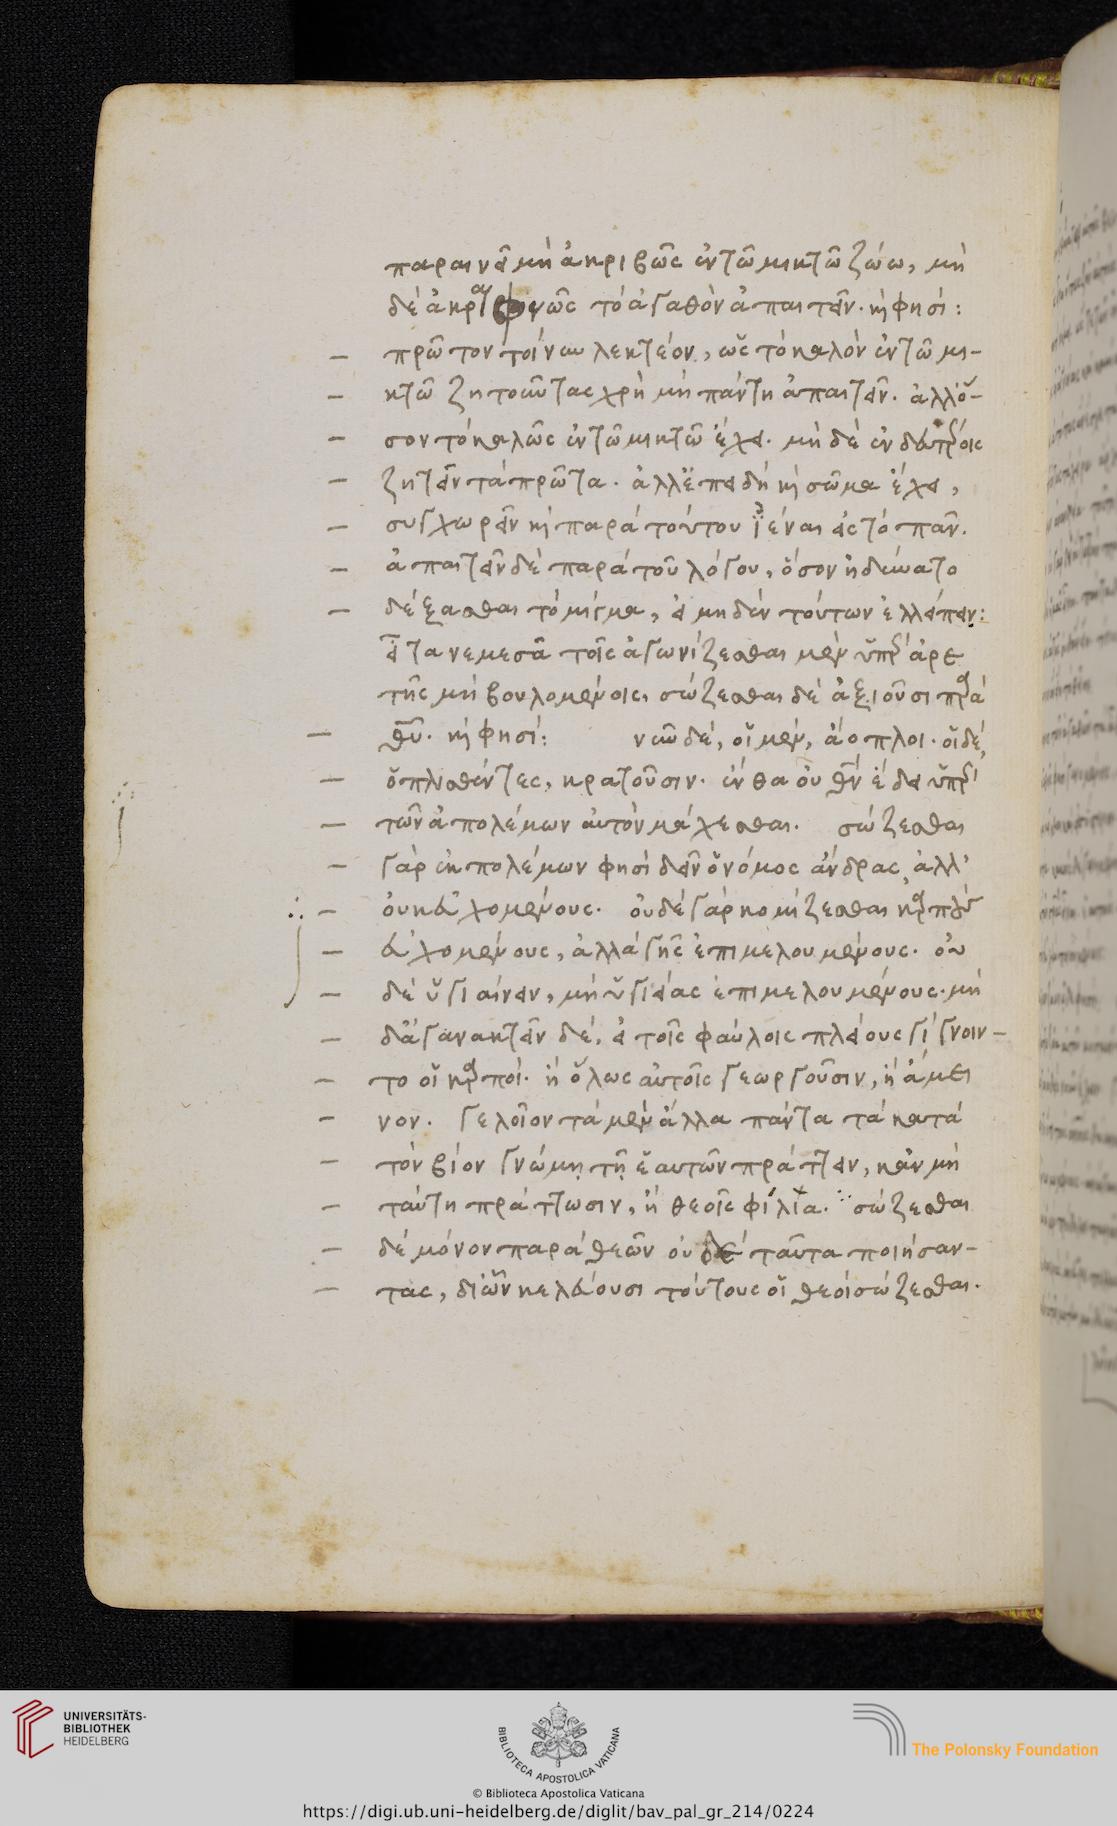 παραινεῖ μὴ ἀκριβῶς ἐν τῶ μικτῶ ζώω, μὴ
δὲ ἀκραιφνῶς τὸ ἀγαθὸν ἀπαιτεῖν. κὴ φησὶ:
πρῶτον τοίνυν λεκτέον, ὡς τὸ καλὸν ἐν τῶ μι-
κτῶ ζητοῦντας χρὴ μὴ πάντη ἀπαιτεῖν. ἀλλ' ὅ-
σον τὸ καλῶς ἐν τῶ μικτῶ ἔχει. μὴ δὲ ἐν δευτέροις
ζητεῖν τὰ πρῶτα. ἀλλ' ἐπειδὴ κὴ σῶμα ἔχει,
συγχωρεῖν κὴ παρὰ τούτου ἰέναι εἰς τὸ πᾶν.
ἀπαιτεῖν δὲ παρὰ τοῦ λόγου, ὅσον ἠδύνατο
δέξασθαι τὸ μίγμα, εἰ μηδὲν τούτων ἐλλείπειν:
εἶτα νεμεσᾶ τοῖς ἀγωνίζεσθαι μὲν ὑπὲρ ἀρε
τῆς μὴ βουλομένοις, σώζεσθαι δὲ ἀξιοῦσι παρὰ
θυ. κὴ φησί: νῦν δὲ, οἱ μὲν, ἄοπλοι. οἱ δὲ
ὁπλισθέντες, κρατοῦσιν. ἔνθα οὐ θν ἔδει ὑπὲρ
τῶν ἀπολέμων αὐτὸν μάχεσθαι. σώζεσθαι
γὰρ ἐκ πολέμων φησὶ δεῖν ὁ νόμος ἄνδρας, ἀλλ'
οὐκ εὐχομένους. οὐδὲ γὰρ κομίζεσθαι καρποὺς
εὐχομένους, ἀλλὰ γῆς ἐπιμελουμένους. οὐ
δὲ ὑγιαίνειν, μὴ ὑγιείας ἐπιμελουμένους. μὴ
δ' ἀγανακτεῖν δὲ, εἰ τοῖς φαύλοις πλείους γίγνοιν-
το οἱ καρποί. ἢ ὅλως αὐτοῖς γεωργοῦσιν, ἢ ἄμει
νον. γελοῖον τὰ μὲν ἄλλα πάντα τὰ κατὰ
τὸν βίον γνώμῃ τῇ ἑαυτῶν πράττειν, κἂν μὴ
ταύτη πράττωσιν, ἢ θεοῖς φίλα. σώζεσθαι
δὲ μόνον παρὰ θεῶν οὐδὲ ταῦτα ποιήσαν-
τας, δι' ὧν κελεύουσι τούτους οἱ θεοὶ σώζεσθαι.
UNIVERSITÄTS-
BIBLIOTHEK
HEIDELBERG
BIBLIOTECA APOSTOLICA VATICANA
The Polonsky Foundation
© Biblioteca Apostolica Vaticana
https://digi.ub.uni-heidelberg.de/diglit/bav_pal_gr_214/0224